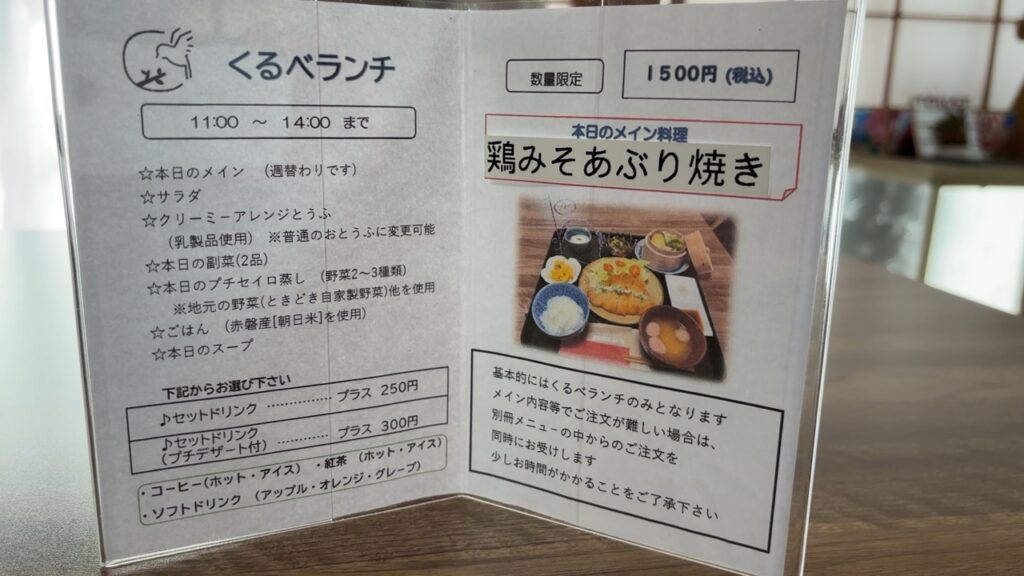 くるべランチ
11:00 ～ 14:00 まで
☆本日のメイン （週替わりです）
☆サラダ
☆クリーミーアレンジとうふ
（乳製品使用） ※普通のおとうふに変更可能
☆本日の副菜(2品)
☆本日のプチセイロ蒸し （野菜2～3種類）
※地元の野菜(ときどき自家製野菜)他を使用
☆ごはん （赤磐産[朝日米]を使用）
☆本日のスープ
下記からお選び下さい
♪セットドリンク ………… プラス 250円
♪セットドリンク ………… プラス 300円
(プチデザート付)
・コーヒー(ホット・アイス) ・紅茶 (ホット・アイス)
・ソフトドリンク (アップル・オレンジ・グレープ)
数量限定
1500円 (税込)
本日のメイン料理
鶏みそあぶり焼き
基本的にはくるべランチのみとなります
メイン内容等でご注文が難しい場合は、
別冊メニューの中からのご注文を
同時にお受けします
少しお時間がかかることをご了承下さい